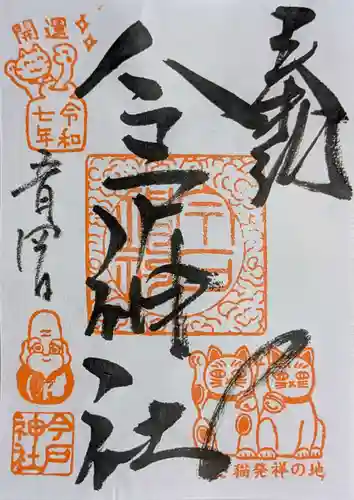 奉拝
今戸神社
開運
令和
七年
今戸
神社
今戸
神社
猫発祥の地